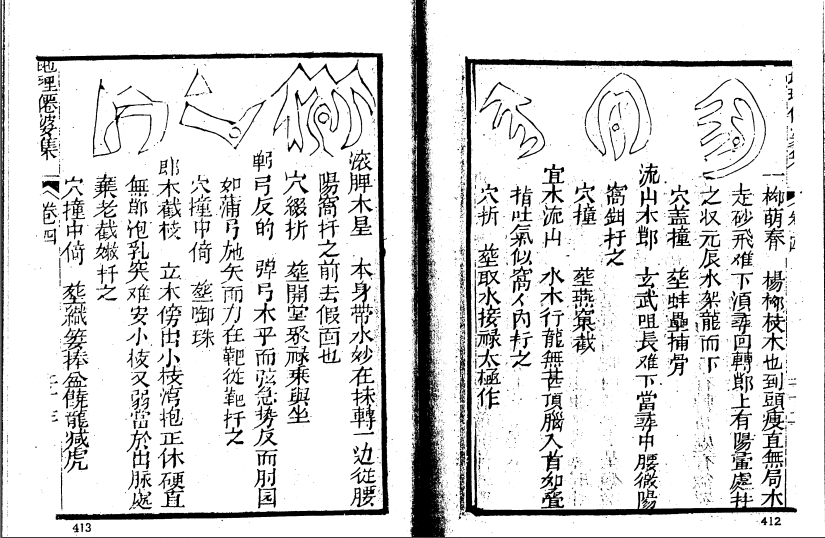 一柳萌春 楊柳枝木也到頭瘦直無局木
走砂飛难下湏尋回轉郎上有陽暈處扦
之収元辰水架龍而下
穴盖撞 塟蚌壘捕骨
流山木郎 玄武咀長难下當尋中腰微陽
窩鉗扦之
穴撞 塟燕窠截
宜木流山 水木行龍無甚頂腦入首如疊
指吐氣似窩人内扦之
穴折 塟取水接禄太極作
412
滚脾木星 本身带水妙在抹轉一边從腰
陽窩扦之前去假面也
穴綴折 塟開堂聚禄乘與坐
躬弓反的 弹弓木乎而弦急势反而肘回
如蒲弓施矢而力在靶從靶扦之
穴撞中倚 塟啣珠
郎木截枝 立木傍出小枝湾抱正休硬直
無郎饱乳突难安小枝又弱當於出脉處
棄老截嫩扦之
穴撞中倚 塟織簍捧盆饒龍减虎
地理僊婆集
卷四
413